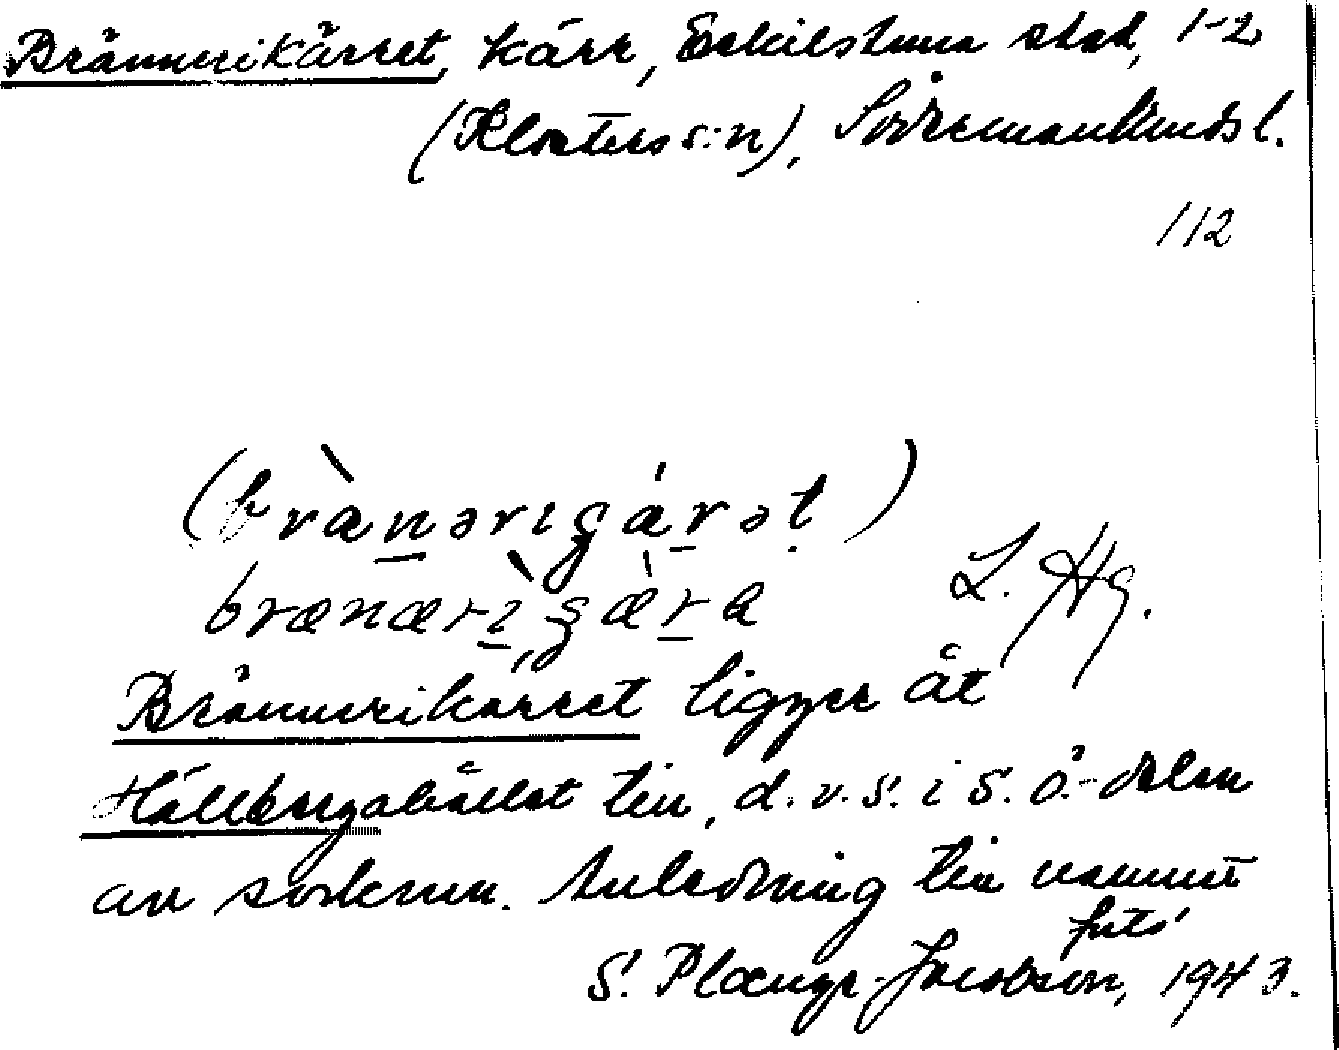 Brännerikärret, kärr, Eskilstuna stad, 1-2
(Klosters s:n), Södermanlands l.
112
(brànərıgá́rət)
brænærìgæ̀ra
L. Hg.
Brännerikärret ligger åt
Hällbergahållet till, d.v.s. i S.Ö.-delen
av socknen. Anledning till namnet
fås'
S. Plænge-Jacobson, 1943.